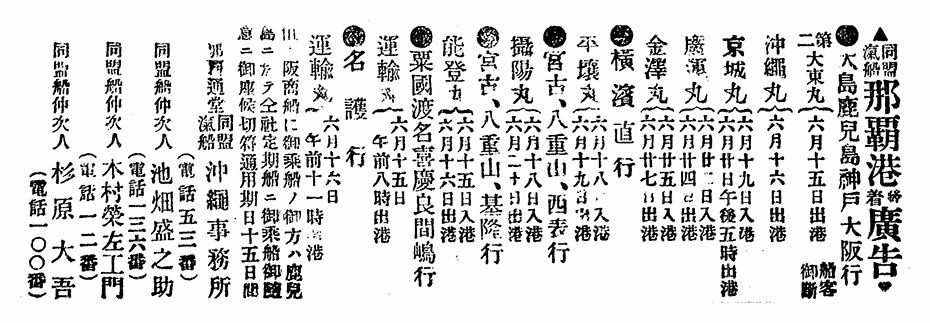 ▲同盟滊船那覇港發着廣告♥
●大島鹿兒島神戸大阪行
第二大東丸 六月十五日出港 船客御斷
沖繩丸 六月十六日出港
京城丸 六月十九日入港
六月廿日午後五時出港
廣運丸 六月廿二日入港
六月廿四日出港
金澤丸 六月廿五日入港
六月廿七日出港
●橫濱直行
平壤丸 六月十八日入港
六月十九日出港
●宮古、八重山、西表行
攝陽丸 六月十八日入港
六月二十日出港
●宮古、八重山、基隆行
能登丸 六月十五日入港
六月十六日出港
●粟國渡名喜慶良間嶋行
運輸丸 六月十五日
午前八時出港
●名護行
運輸丸 六月十六日
午前十一時出港
但 阪商船に御乘船ノ御方ハ鹿兒
島ニ テ仝社定期船ニ御乘船御隨
意ニ御座候切符通用期日十五日間
那覇通堂 同盟滊船 沖繩事務所
(電話五三番)
同盟船仲次人 池畑盛之助
(電話一三六番)
同盟船仲次人 木村榮左工門
(電話一二番)
同盟船仲次人 杉原大吾
(電話一〇〇番)